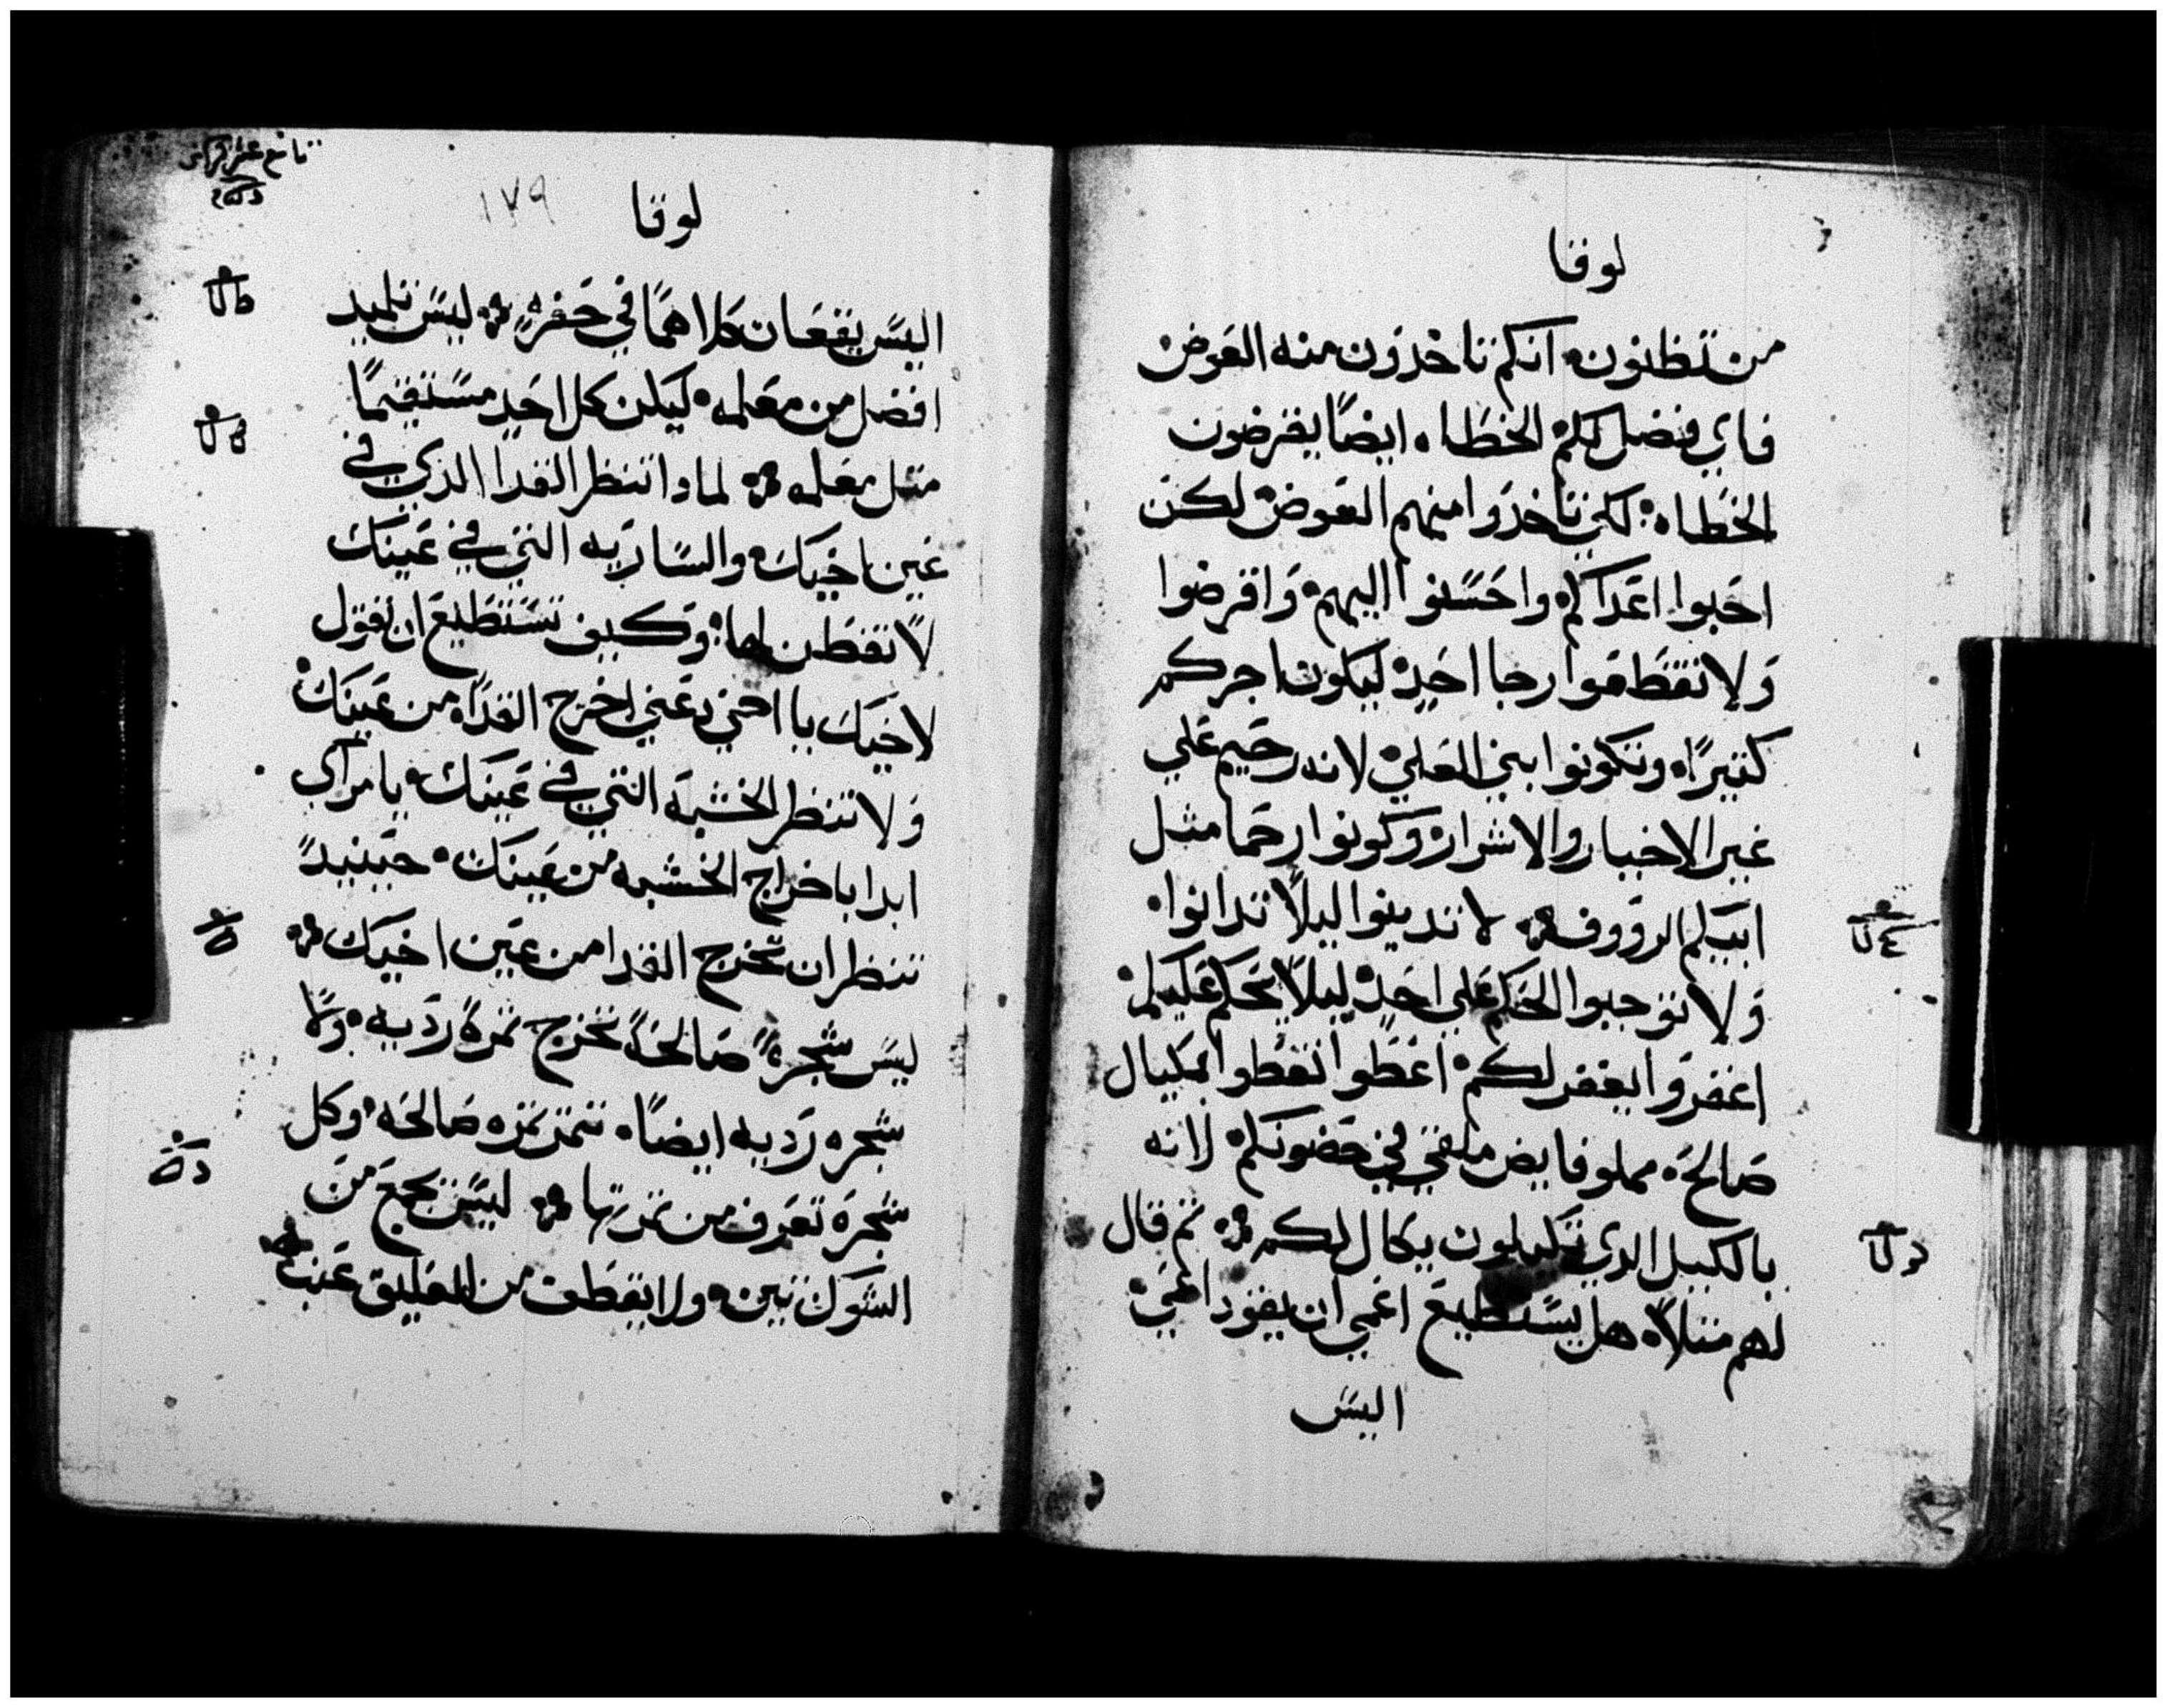 لوقا
من تظنون انكم تاخدون منه العوض
فاي فضل لكم الخطاه ايضًا يقرضون
الخطاه لكي تاخدوا منهم العوض لكن
احبوا اعداكم واحسنوا اليهم واقرضوا
ولا تقطعوا رجا احد ليكون اجركم
كتيرًا وتكونوا بني العلي لانه رحيم علي
غير الاخيار والاشرار وكونوا رحما مثل
ابيكم الرووف لا تدينوا ليلا تدانوا
ولا توجبوا الحكم علي احد ليلا يحكم عليكم
اغفروا يغفر لكم اعطوا تعطوا بمكيال
صالحه مملو فايض ملقي في حضونكم لانه
بالكيل الدي تكيلون يكال لكم تم قال
لهم متلاً هل يستطيع اعمي ان يقود اعمي
اليس
لوقا
١٧٩
اليس يقعان كلاهما في حفره ليس تلميد
افضل من معلمه ليكن كل احد مستقيمًا
متل معلمه لمادا تنظر القدا الدي في
عين اخيك والساريه التي في عينك
لا تفطن لها وكيف تستطيع ان تقول
لاخيك يا اخي دعني اخرج القداه من عينك
ولا تنظر الخشبه التي في عينك يا مراي
ابدا باخراج الخشبه من عينك حينيدً
تنظر ان تخرج القدا من عين اخيك
ليس شجرةً صالحةً تخرج تمرةً رديه ولا
شجره رديه ايضًا تتمر تمره صالحه وكل
شجره تعرف من تمرتها ليس يجمع من
الشوك تين ولا يقطف من العليق عنب